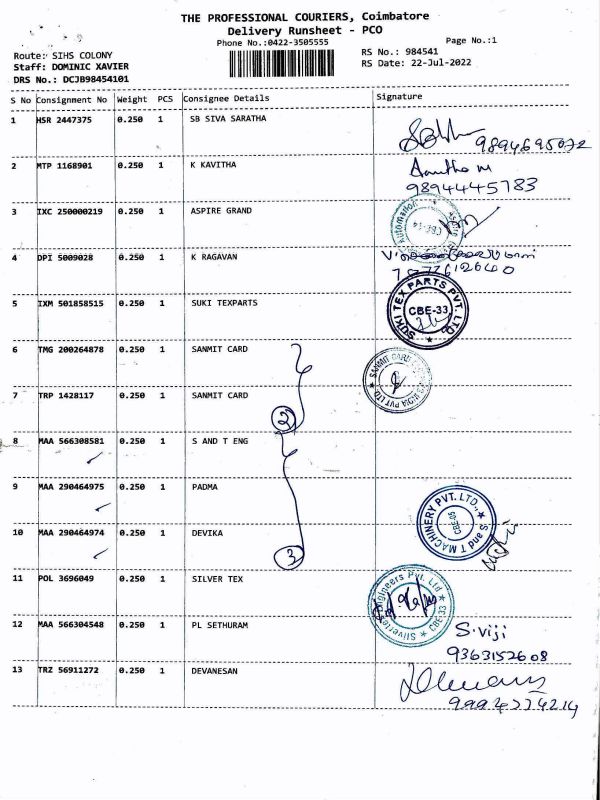 THE PROFESSIONAL COURIERS, Coimbatore
Delivery Runsheet - PCO
Phone No.:0422-3505555
Page No.:1
Route: SIHS COLONY
RS No.: 984541
Staff: DOMINIC XAVIER
RS Date: 22-Jul-2022
DRS No.: DCJB98454101
S No Consignment No Weight PCS Consignee Details Signature
1 HSR 2447375 0.250 1 SB SIVA SARATHA
9894695072
2 MTP 1168901 0.250 1 K KAVITHA
9894445783
3 IXC 250000219 0.250 1 ASPIRE GRAND
Automation
CBE-14
4 DPI 5009028 0.250 1 K RAGAVAN
5 IXM 501858515 0.250 1 SUKI TEXPARTS
SUKI TEX PARTS PVT. LTD.
CBE-33
6 TMG 200264878 0.250 1 SANMIT CARD
7 TRP 1428117 0.250 1 SANMIT CARD
SANMIT CARD PVT LTD.
2
8 MAA 566308581 0.250 1 S AND T ENG
9 MAA 290464975 0.250 1 PADMA
S and T MACHINERY PVT. LTD.,
CBE-05
10 MAA 290464974 0.250 1 DEVIKA
3
11 POL 3696049 0.250 1 SILVER TEX
Silvertex Engineers Pvt. Ltd
CBE-33
12 MAA 566304548 0.250 1 PL SETHURAM
S.Viji
9363152608
13 TRZ 56911272 0.250 1 DEVANESAN
9994274214